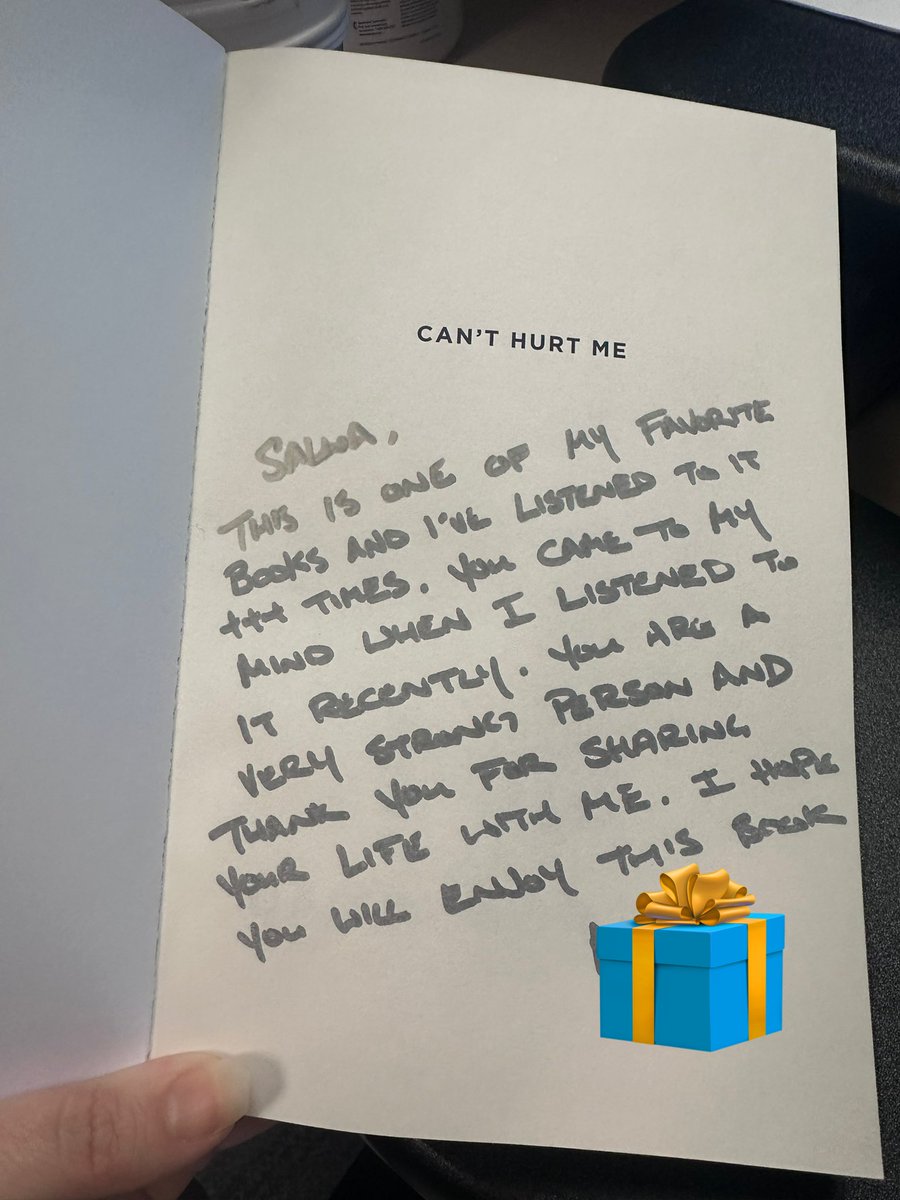 CAN'T HURT ME
SALWA,
THIS IS ONE OF MY FAVORITE
BOOKS AND I'VE LISTENED TO IT
TIMES. YOU CAME TO MY
MIND WHEN I LISTENED TO
IT RECENTLY. YOU ARE A
VERY STRONG PERSON AND
THANK YOU FOR SHARING
YOUR LIFE WITH ME. I HOPE
YOU WILL ENJOY THIS BOOK